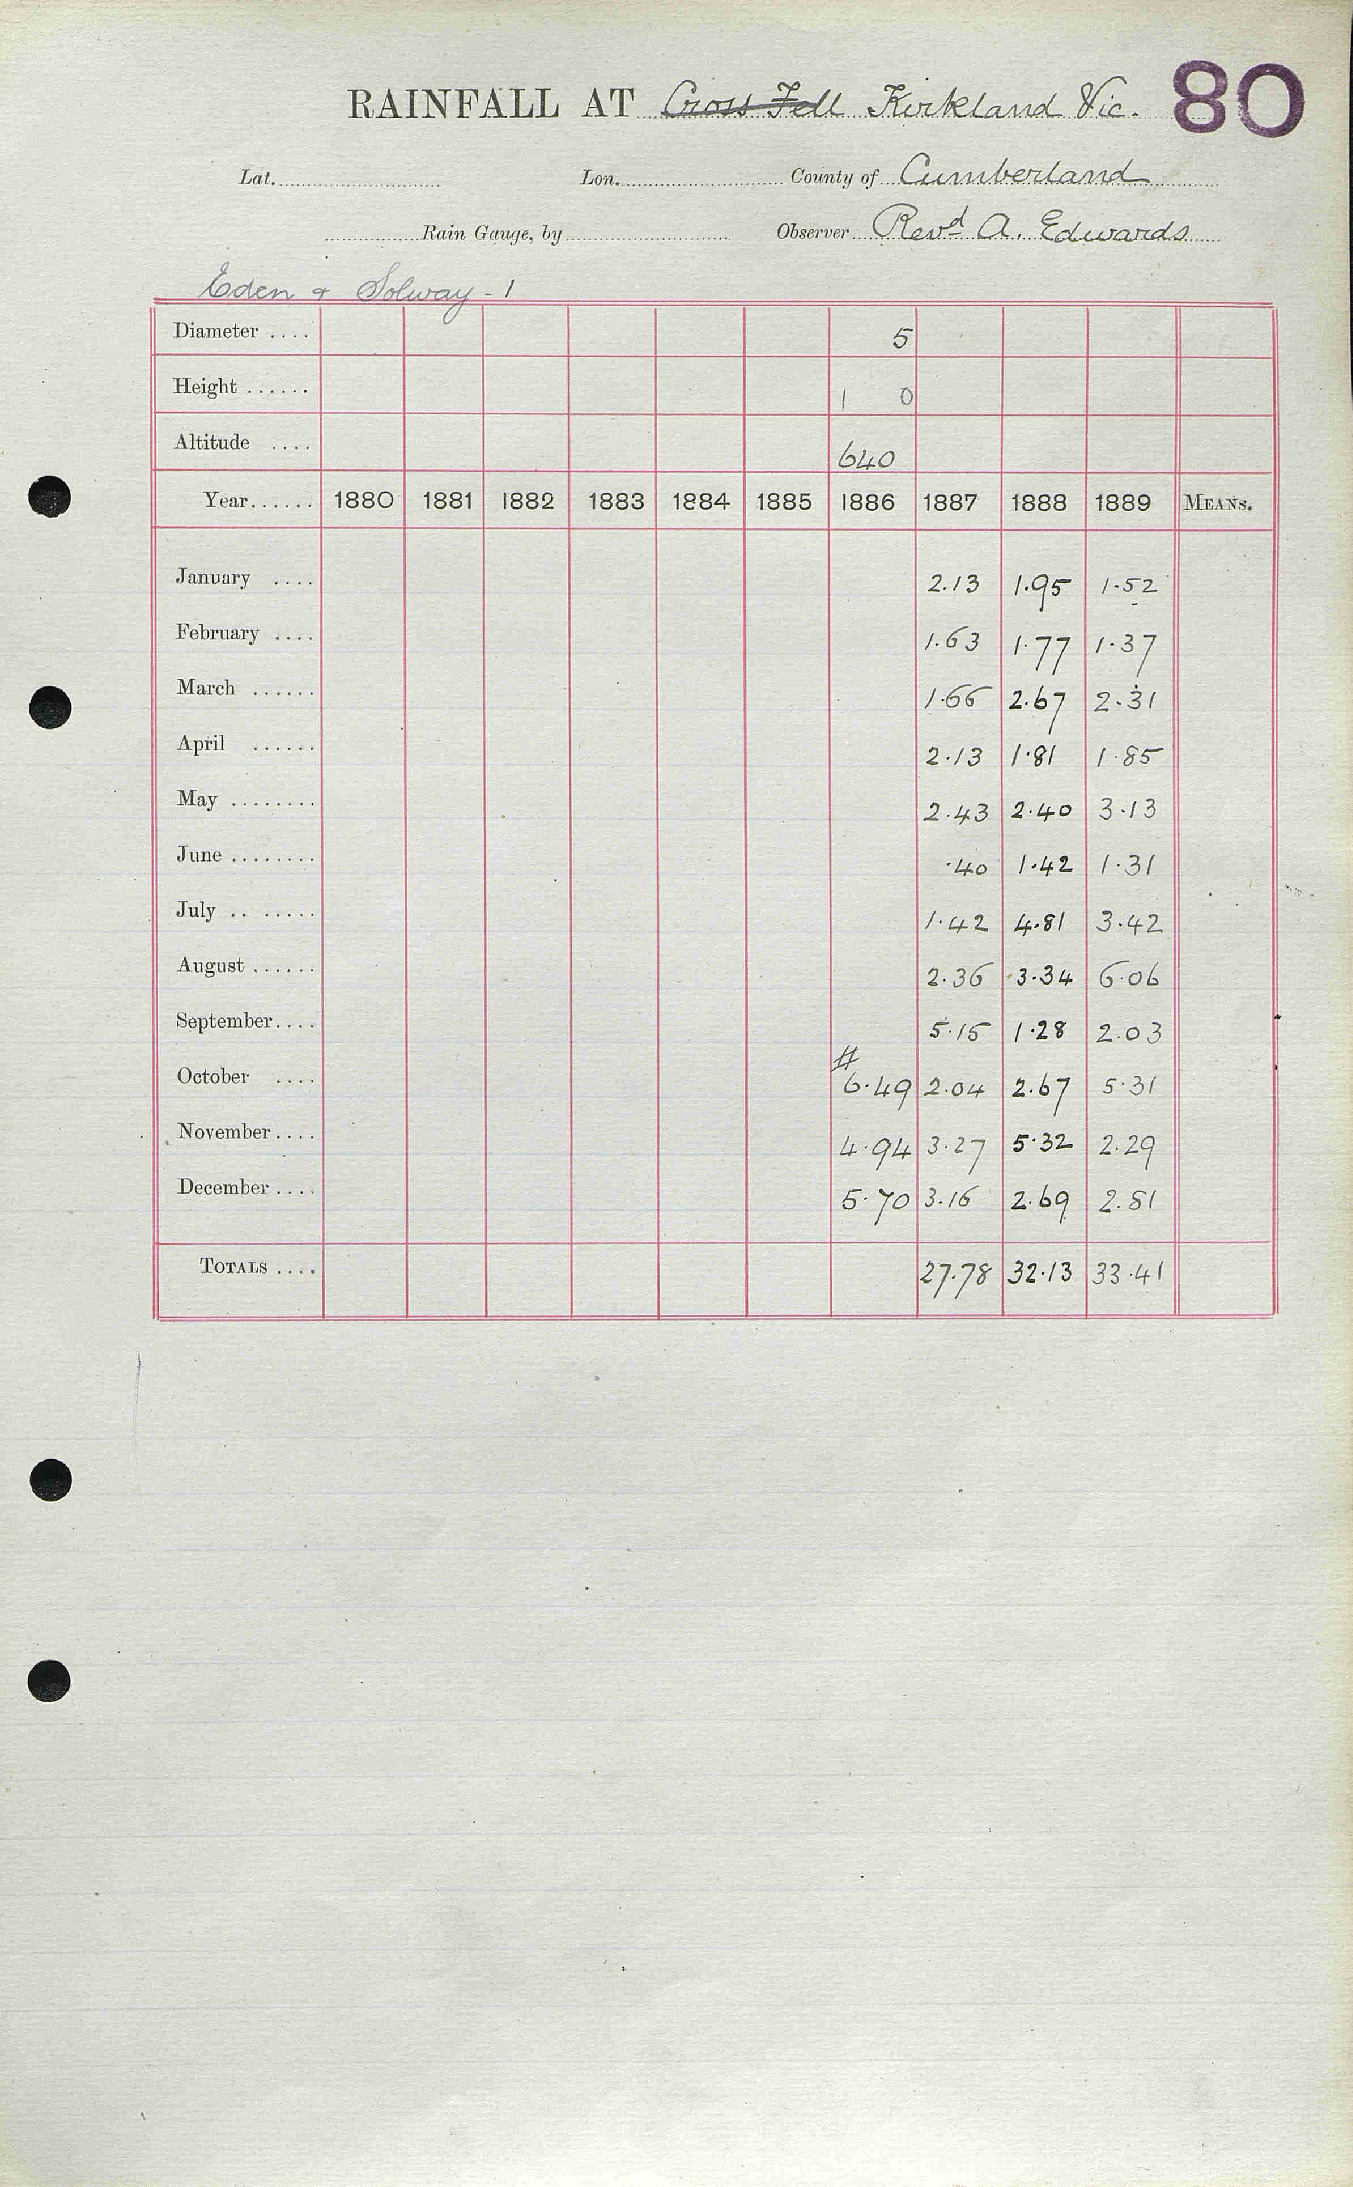 RAINFALL AT Cross Fell Kirkland Vic. 80
Lat. Lon. County of Cumberland
Rain Gauge, by Observer Revd A. Edwards
Eden & Solway - 1
Diameter .... 5
Height ...... 1 0
Altitude .... 640
Year...... 1880 1881 1882 1883 1884 1885 1886 1887 1888 1889 MEANS.
January .... 2.13 1.95 1.52
February .... 1.63 1.77 1.37
March ...... 1.66 2.67 2.31
April ...... 2.13 1.81 1.85
May ........ 2.43 2.40 3.13
June ........ .40 1.42 1.31
July .. ...... 1.42 4.81 3.42
August ...... 2.36 3.34 6.06
September.... 5.15 1.28 2.03
#
October .... 6.49 2.04 2.67 5.31
November.... 4.94 3.27 5.32 2.29
December.... 5.70 3.16 2.69 2.81
TOTALS .... 27.78 32.13 33.41